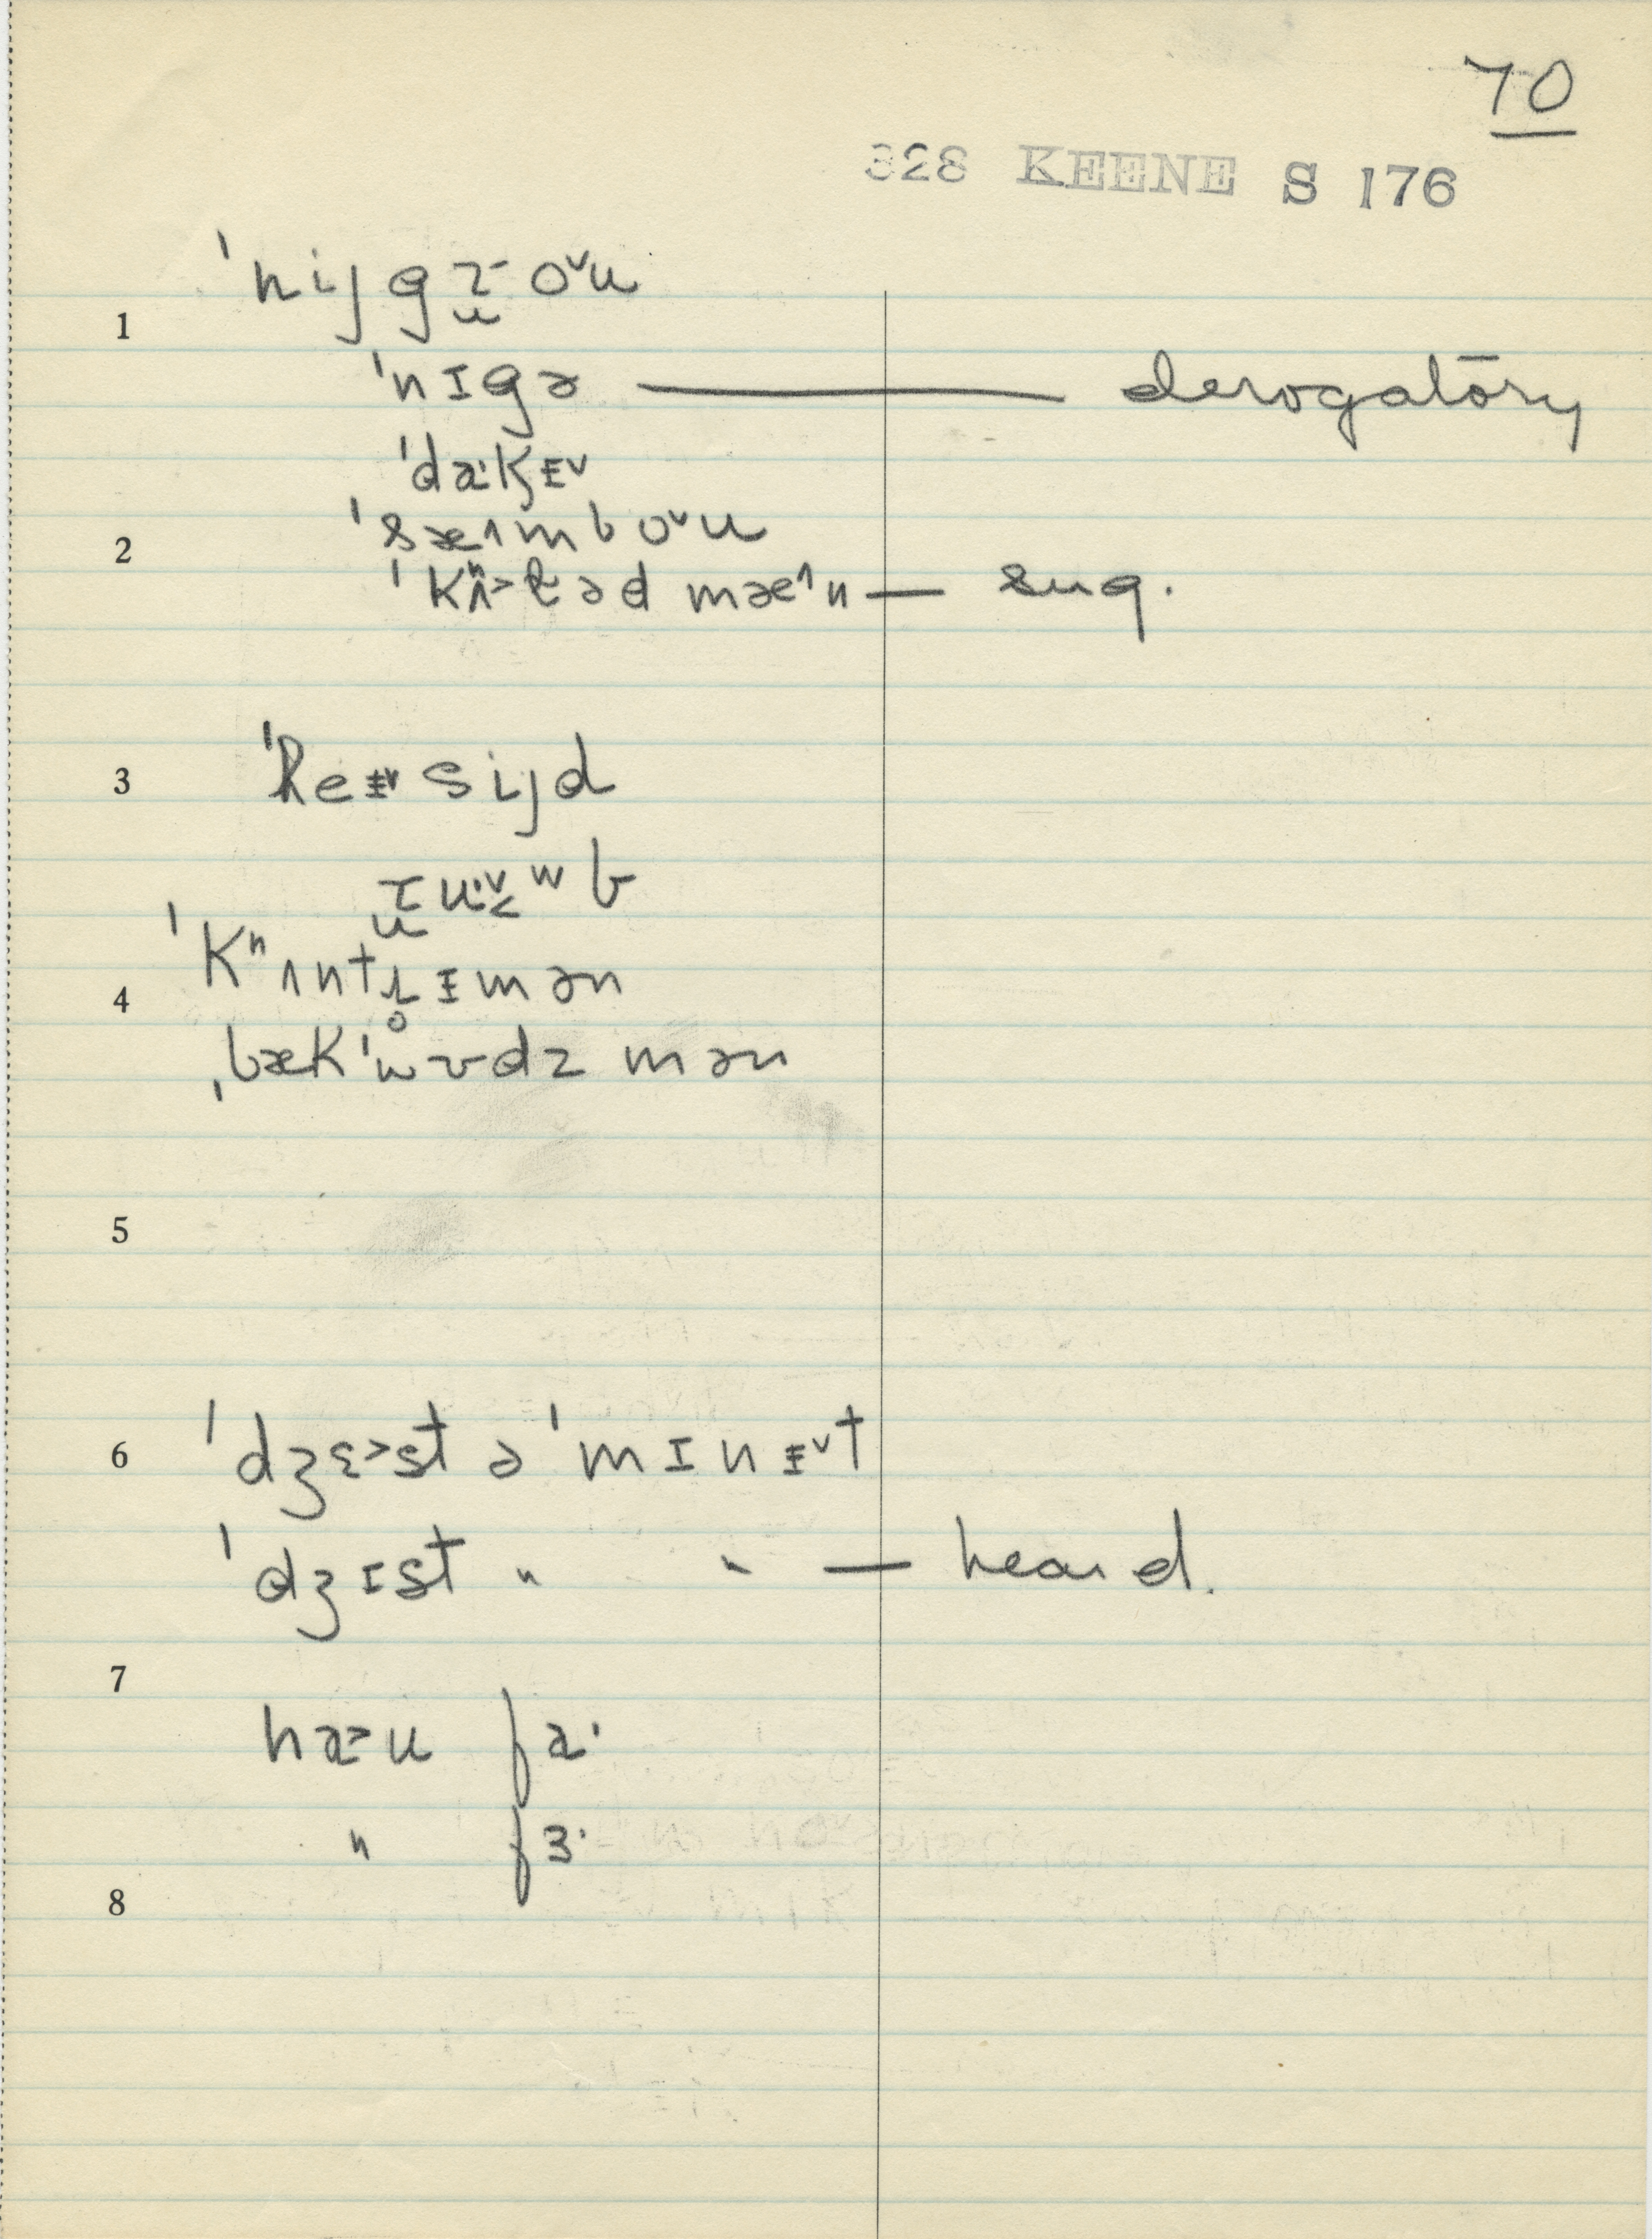 70
328 KEENE S 176
1 ˈnijgɹ̫-oᵛu
ˈnɪgə — derogatōry
ˈdaˑkᵻᵛ
2 ˈsæ^mboᵛu
ˈkʰʌ>ləd mæ^n — sug.
3 ˈreᵻᵛsijd
ɹ̫uˑᵛ<ʷb
4 ˈkʰʌntɹ̥ᵻmən
ˌbækˈwʊdzmən
5
6 ˈdʒɛ>st ə ˈmɪnᵻᵛt
ˈdʒɪst " " — heard.
7 ha>u faˑ
" fɜˑ
8